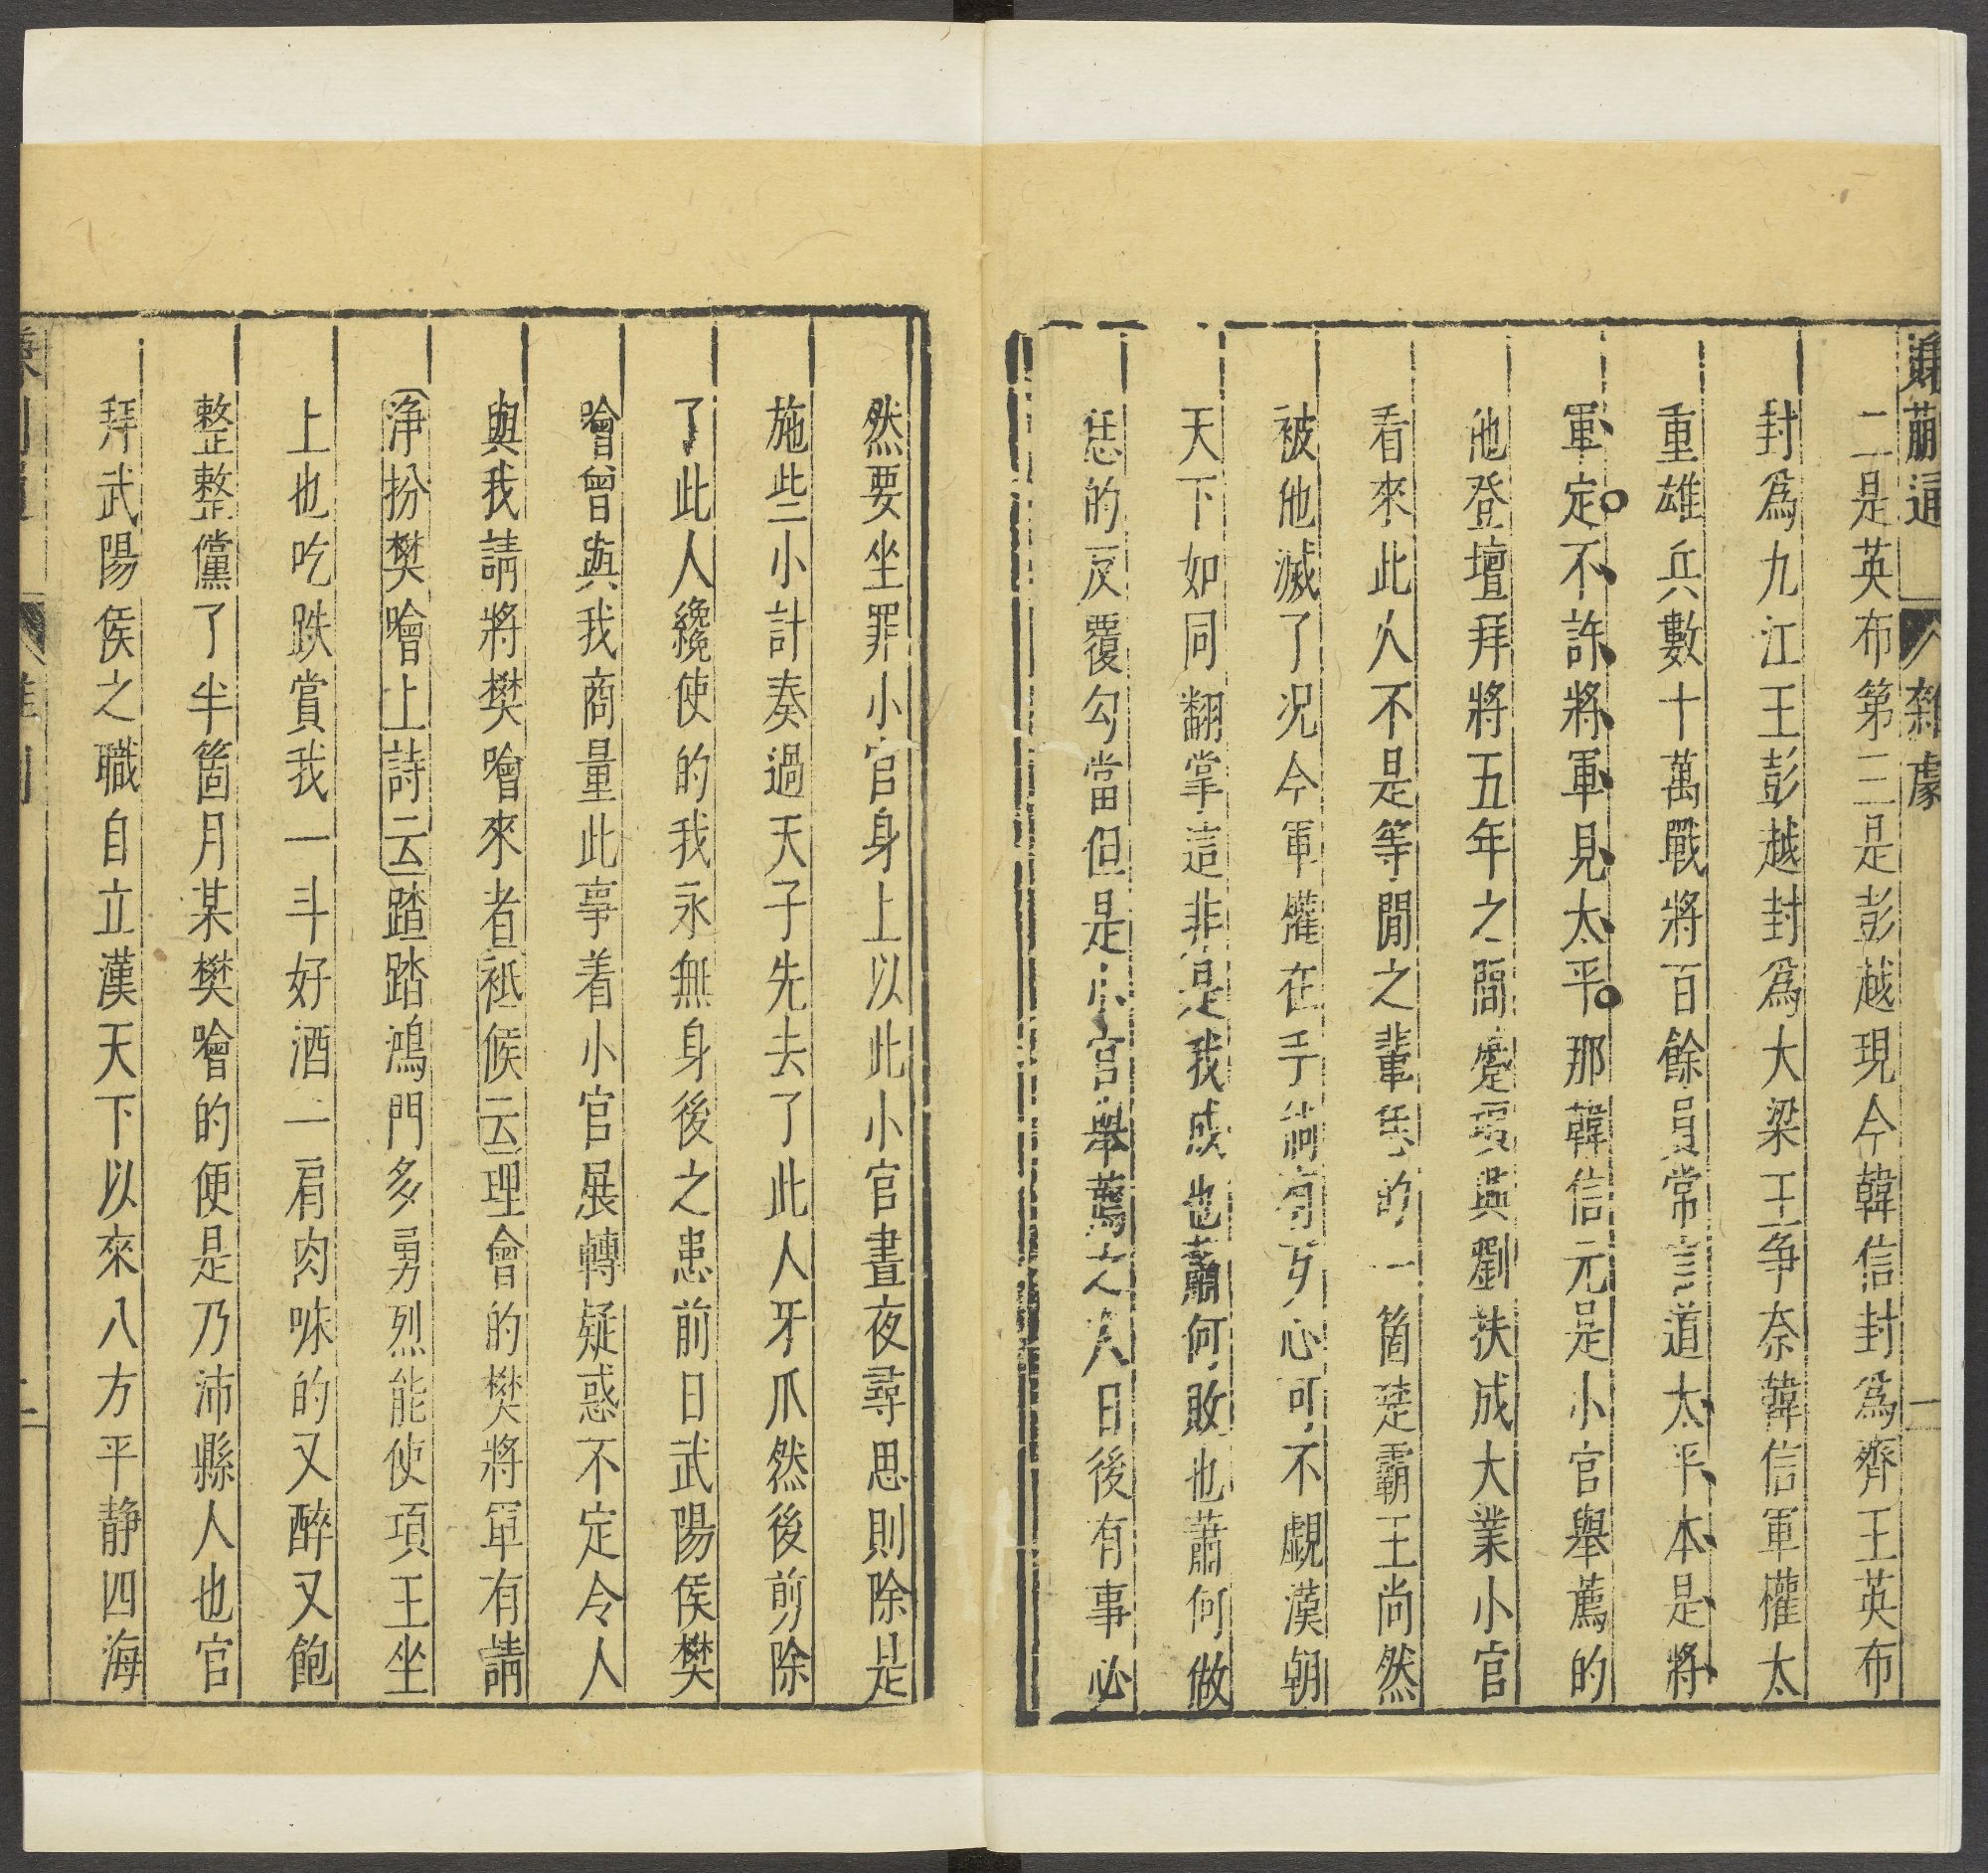 賺蒯通 雜劇 一
二是英布第三是彭越現今韓信封爲齊王英布
封爲九江王彭越封爲大梁王争奈韓信軍權太
重雄兵數十萬戰將百餘員常言道太平本是將
軍定不許將軍見太平那韓信元是小官舉薦的
他登壇拜將五年之間蹙項興劉扶成大業小官
看來此人不是等閒之輩恁的一箇楚霸王尚然
被他滅了况今軍權在手倘有歹心可不覷漢朝
天下如同翻掌這非是我成也蕭何敗也蕭何做
恁的反覆勾當但是小官舉薦之人日後有事必
然要坐罪小官身上以此小官晝夜尋思則除是
施些小計奏過天子先去了此人牙爪然後剪除
了此人纔使的我永無身後之患前日武陽侯樊
噲曾與我商量此事着小官展轉疑惑不定令人
與我請將樊噲來者祗候云理會的樊將軍有請
淨扮樊噲上詩云踏踏鴻門多勇烈能使項王坐
上也吃跌賞我一斗好酒一肩肉㖼的又醉又飽
整整儻了半箇月某樊噲的便是乃沛縣人也官
拜武陽侯之職自立漢天下以來八方平靜四海